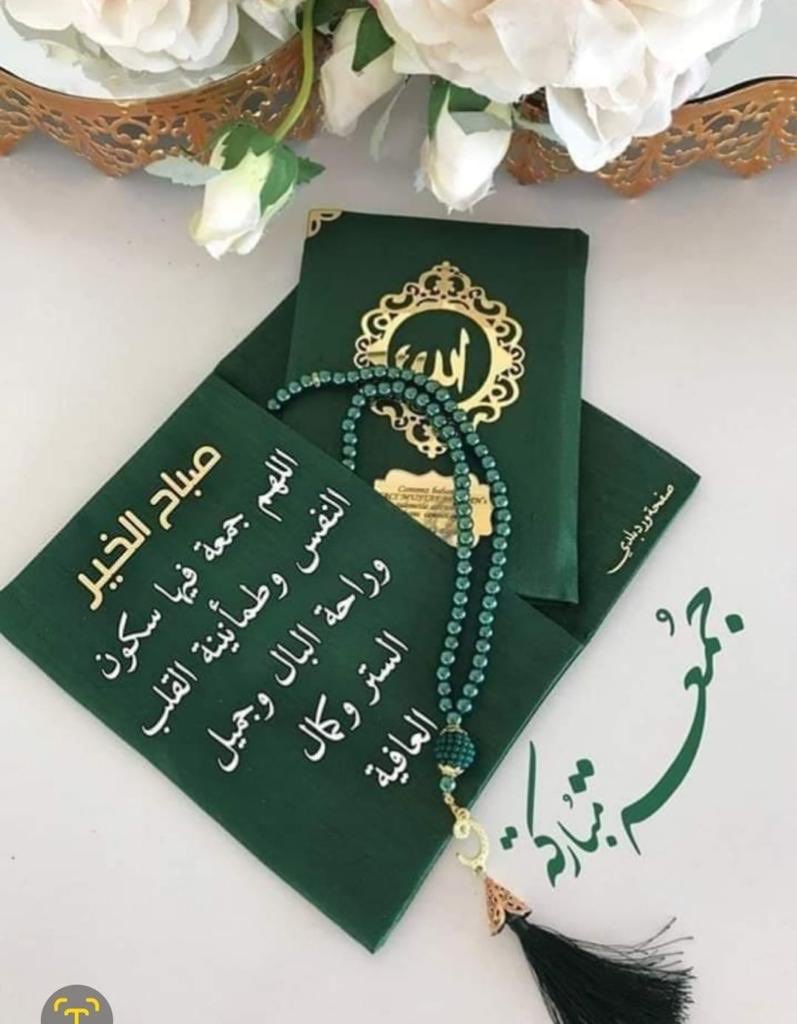 الله
صباح الخير
اللهم جمعة فيها سكون
النفس وطمأنينة القلب
وراحة البال وجميل
الستر وكمال
العافية
صفحة ورد بلدي
جُمعة
مُباركة